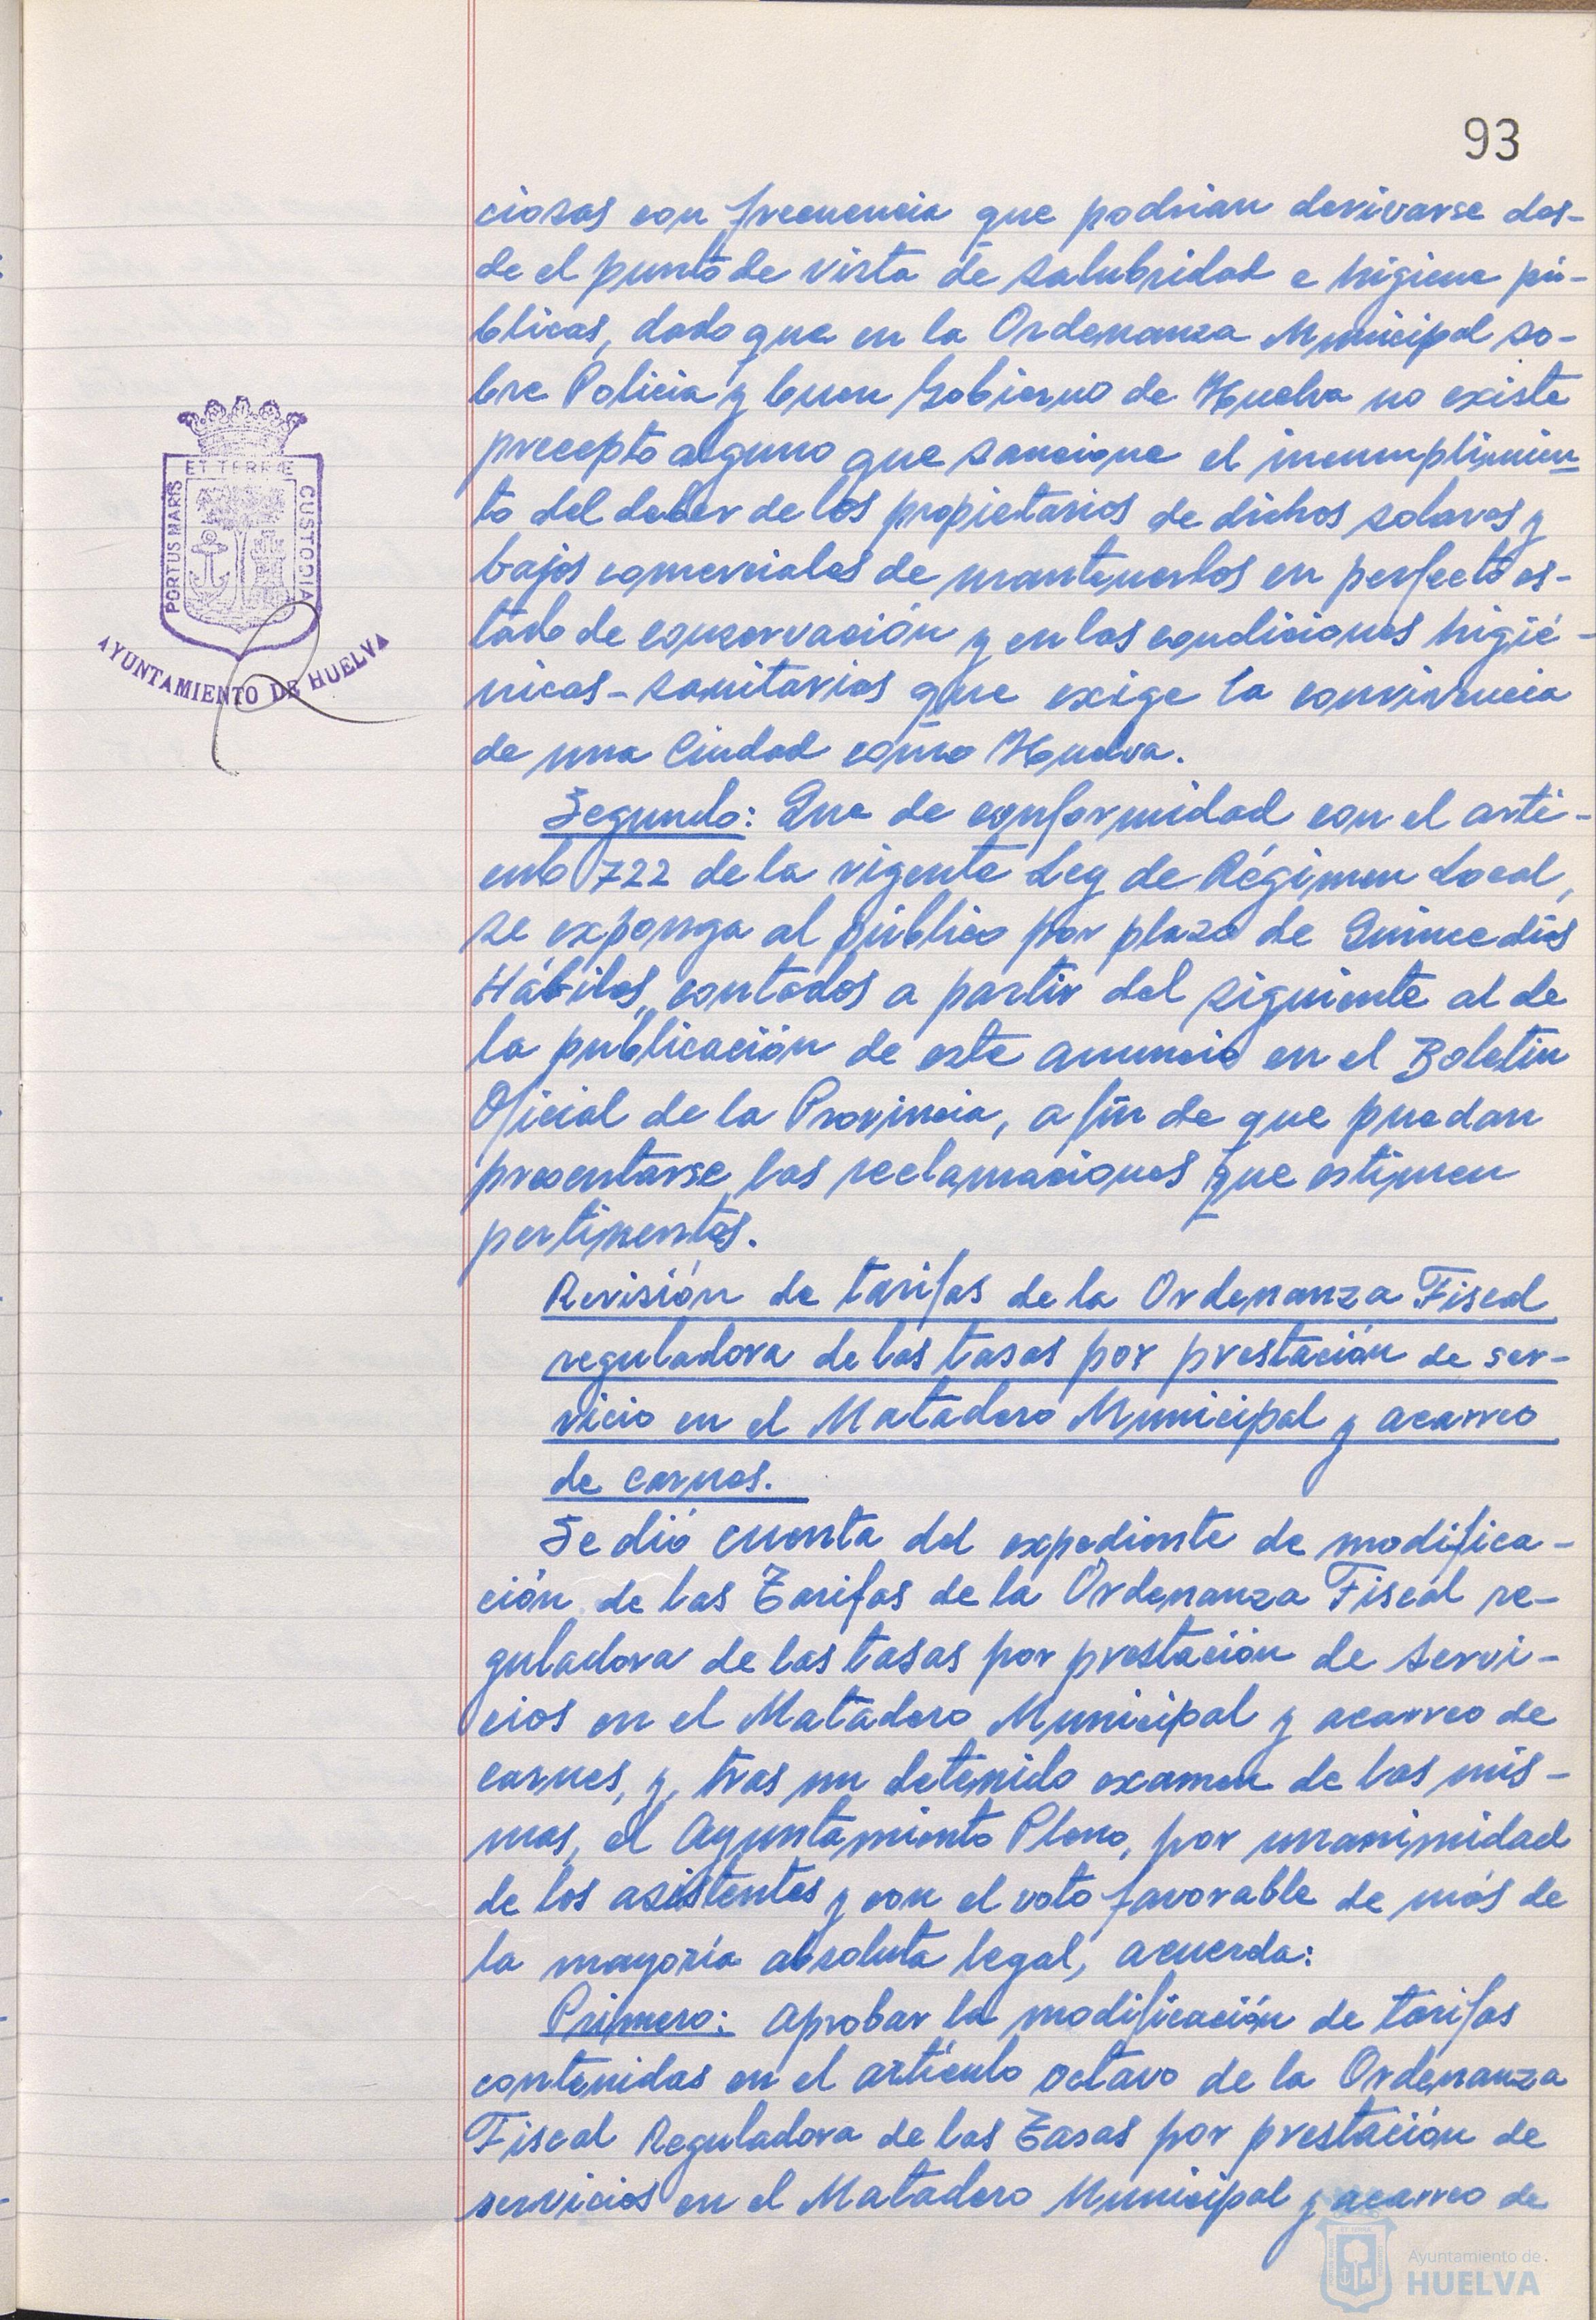 93
ciosas con frecuencia que podrian derivarse des-
de el punto de vista de salubridad e higiene pú-
blicas, dado que en la Ordenanza Municipal so-
bre Policia y buen Gobierno de Huelva no existe
precepto alguno que sancione el incumplimien
to del deber de los propietarios de dichos solares y
bajos comerciales de mantenerlos en perfecto es-
tado de conservación y en las condiciones higié-
nicas-sanitarias que exige la convivencia
de una Ciudad como Huelva.
Segundo: Que de conformidad con el artí-
culo 722 de la vigente Ley de Régimen Local,
se exponga al público por plazo de Quince días
Hábiles, contados a partir del siguiente al de
la publicación de este anuncio en el Boletin
Oficial de la Provincia, a fin de que puedan
presentarse las reclamaciones que estimen
pertinentes.
Revisión de tarifas de la Ordenanza Fiscal
reguladora de las tasas por prestación de ser-
vicio en el Matadero Municipal y acarreo
de carnes.
Se dió cuenta del expediente de modifica-
ción de las Tarifas de la Ordenanza Fiscal re-
guladora de las tasas por prestación de servi-
cios en el Matadero Municipal y acarreo de
carnes, y, tras un detenido examen de las mis-
mas, el Ayuntamiento Pleno, por unanimidad
de los asistentes y con el voto favorable de más de
la mayoría absoluta legal, acuerda:
Primero: Aprobar la modificación de tarifas
contenidas en el artículo octavo de la Ordenanza
Fiscal Reguladora de las Tasas por prestación de
servicios en el Matadero Municipal y acarreo de
PORTUS MARIS
ET TERRÆ
CUSTODIA
AYUNTAMIENTO DE HUELVA
Ayuntamiento de
HUELVA